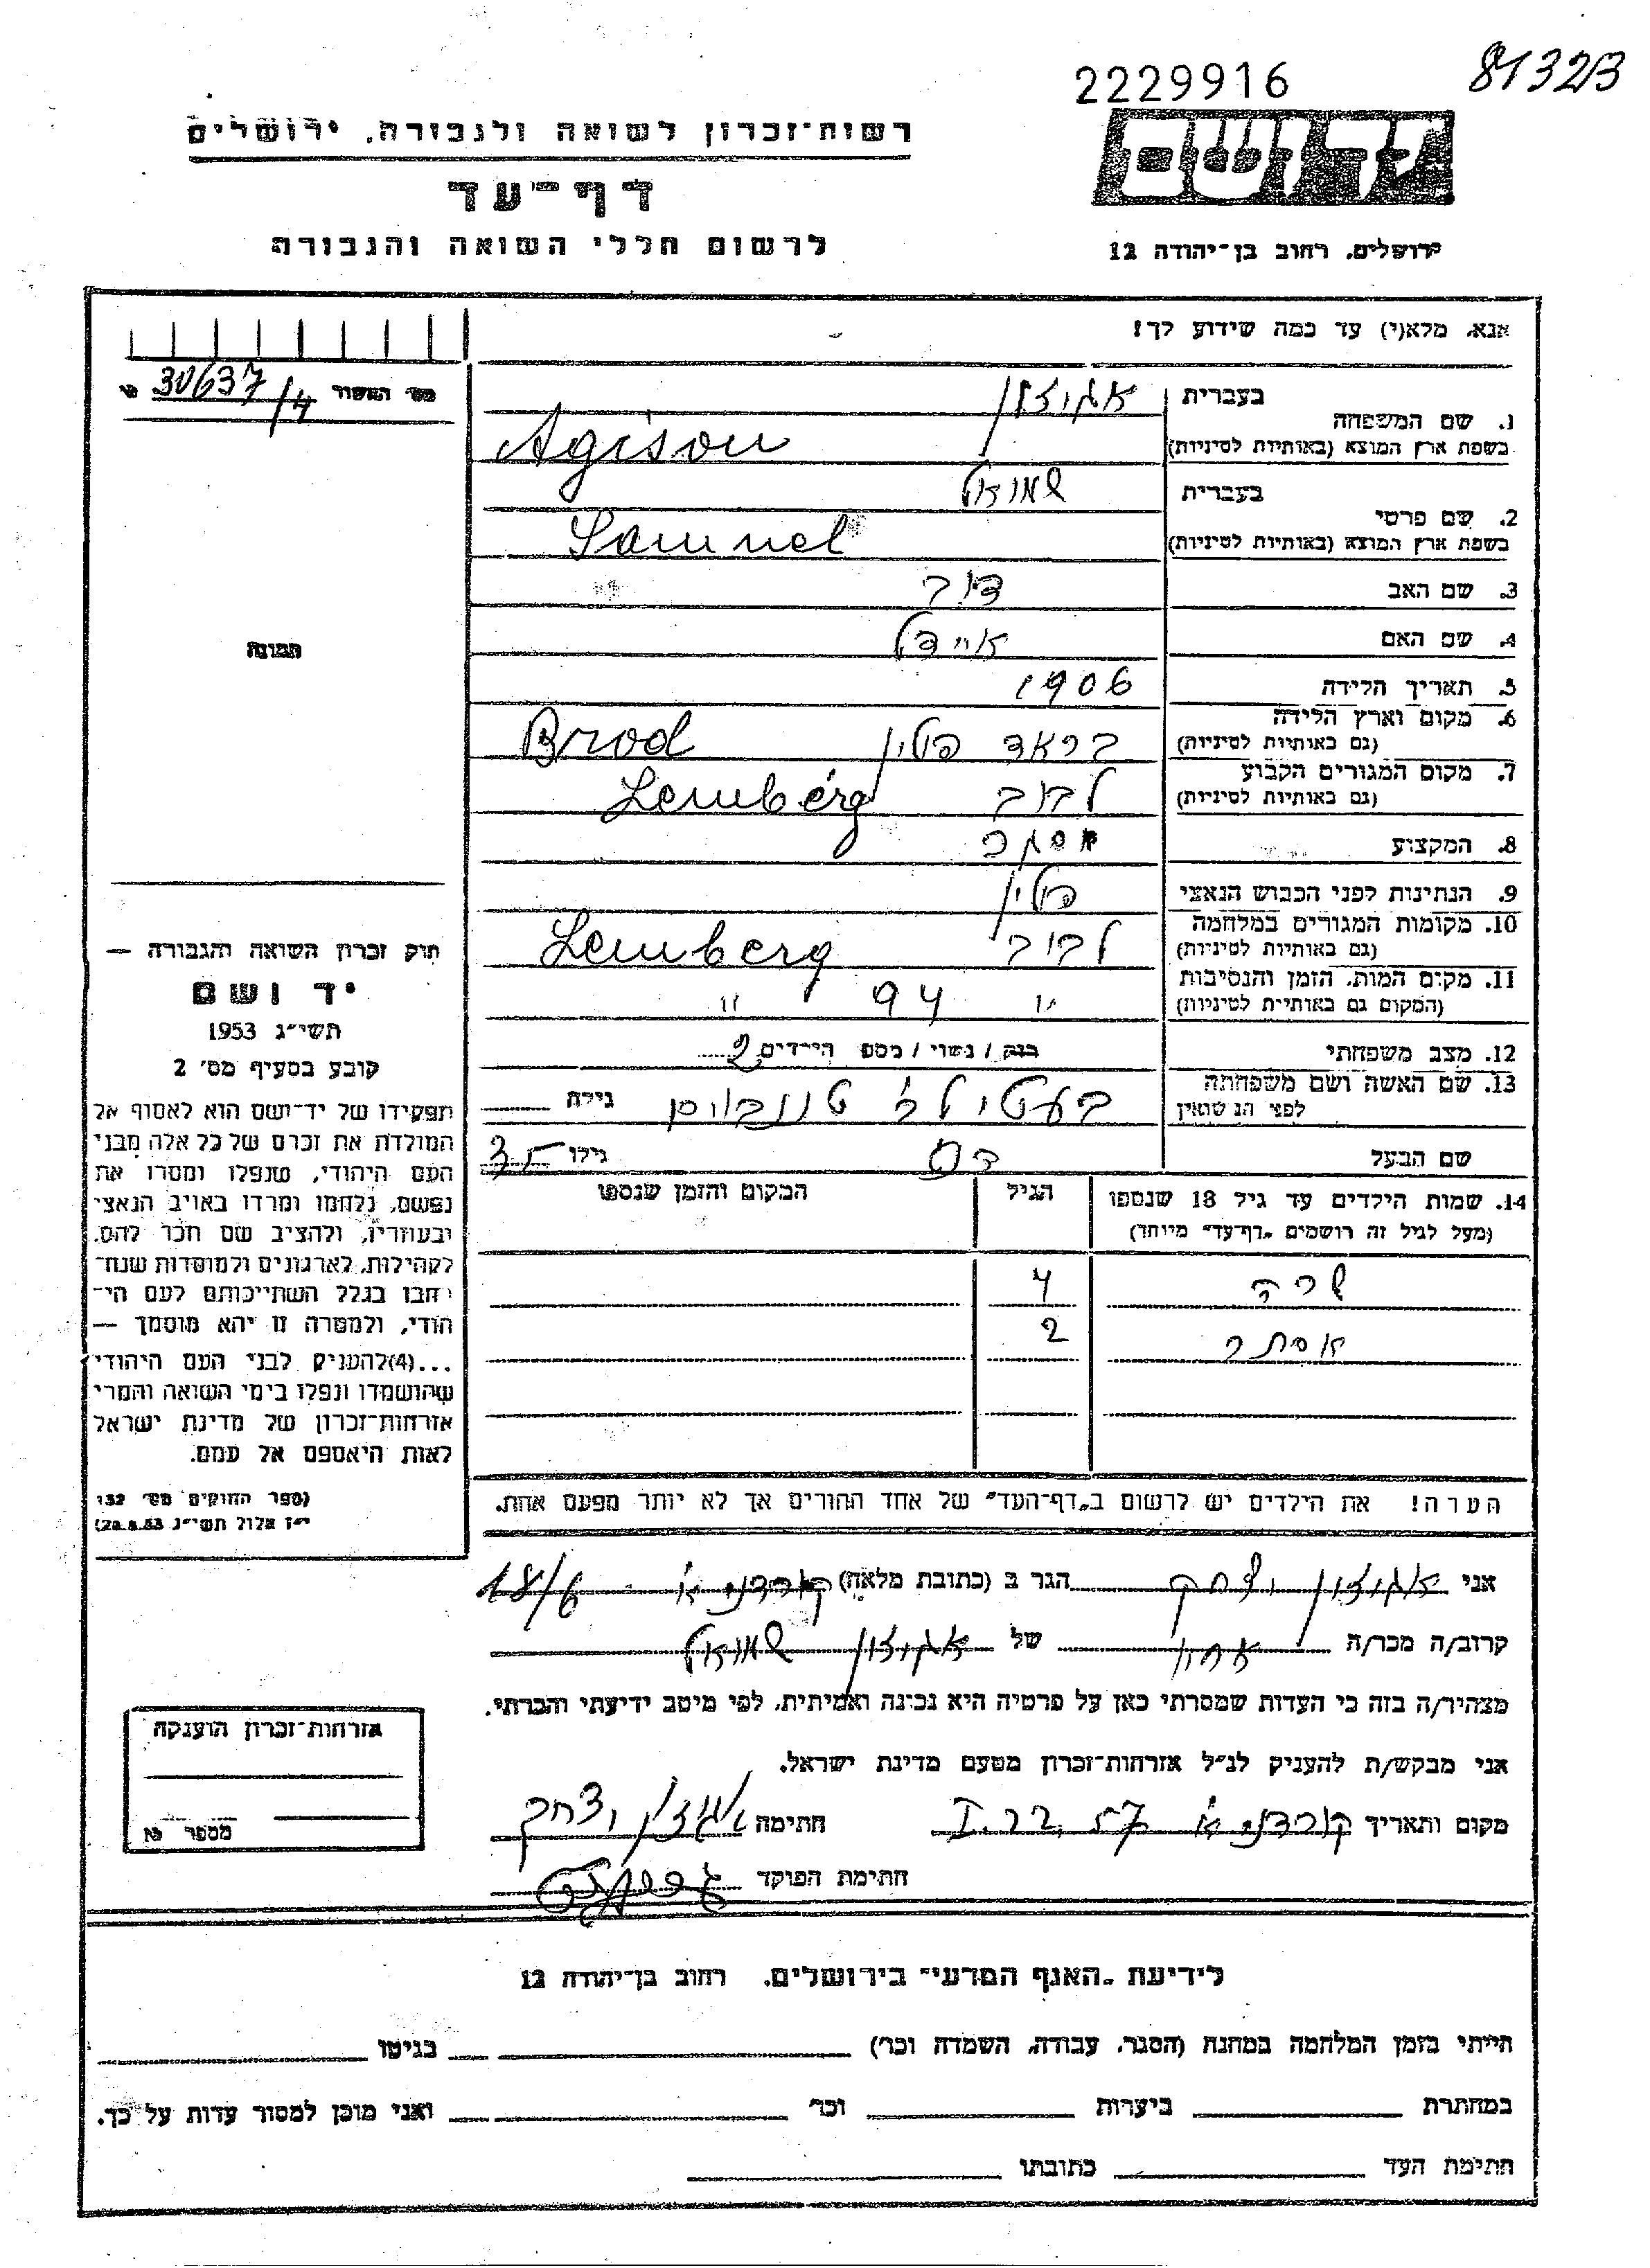 2229916
81323
רשות־זכרון לשואה ולגבורה, ירושלים
יד ושם
דף־עד
לרשום חללי השואה והגבורה
ירושלים, רחוב בן־יהודה 12
אנא, מלא(י) עד כמה שידוע לך!
מס׳ האשור 30637/4
בעברית
1. שם המשפחה
בשפת ארץ המוצא (באותיות לטיניות) Agison
בעברית שמואל
2. שם פרטי
בשפת ארץ המוצא (באותיות לטיניות) Samuel
3. שם האב דוב
4. שם האם איידל
תמונה
5. תאריך הלידה 1906
6. מקום וארץ הלידה בראד פולין Brod
(גם באותיות לטיניות)
7. מקום המגורים הקבוע לבוב Lemberg
(גם באותיות לטיניות)
8. המקצוע
9. הנתינות לפני הכבוש הנאצי פולין
10. מקומות המגורים במלחמה לבוב Lemberg
(גם באותיות לטיניות)
11. מקום המות, הזמן והנסיבות " 94 "
(המקום גם באותיות לטיניות)
12. מצב משפחתי רווק / נשוי / מספר הילדים 2
13. שם האשה ושם משפחתה
לפני הנישואין גילה
שם הבעל גילו 35
14. שמות הילדים עד גיל 18 שנספו הגיל המקום והזמן שנספו
(מעל לגיל זה רושמים „דף־עד” מיוחד)
שרה 4
אסתר 2
חוק זכרון השואה והגבורה —
יד ושם
תשי״ג 1953
קובע בסעיף מס׳ 2
תפקידו של יד־ושם הוא לאסוף אל
המולדת את זכרם של כל אלה מבני
העם היהודי, שנפלו ומסרו את
נפשם, נלחמו ומרדו באויב הנאצי
ובעוזריו, ולהציב שם וזכר להם,
לקהילות, לארגונים ולמוסדות שנח־
רבו בגלל השתייכותם לעם הי־
הודי, ולמטרה זו יהא מוסמך —
...(4)להעניק לבני העם היהודי
שהושמדו ונפלו בימי השואה והמרי
אזרחות־זכרון של מדינת ישראל
לאות היאספם אל עמם.
(ספר החוקים מס׳ 132
י״ז אלול תשי״ג 28.8.53)
הערה! את הילדים יש לרשום ב„דף־העד” של אחד ההורים אך לא יותר מפעם אחת.
אני אגוזון יצחק הגר ב (כתובת מלאה) קורדני א׳ 18/6
קרוב/ה מכר/ה של אגוזון שמואל
מצהיר/ה בזה כי העדות שמסרתי כאן על פרטיה היא נכונה ואמיתית, לפי מיטב ידיעתי והכרתי.
אני מבקש/ת להעניק לנ״ל אזרחות־זכרון מטעם מדינת ישראל.
מקום ותאריך קורדני א׳ 57 .22.I חתימה אגוזון יצחק
חתימת הפוקד
אזרחות־זכרון הוענקה
מספר
לידיעת „האגף המדעי” בירושלים, רחוב בן־יהודה 12
הייתי בזמן המלחמה במחנה (הסגר, עבודה, השמדה וכר׳) בגיטו
במחתרת ביערות וכר׳ ואני מוכן למסור עדות על כך.
חתימת העד כתובתו